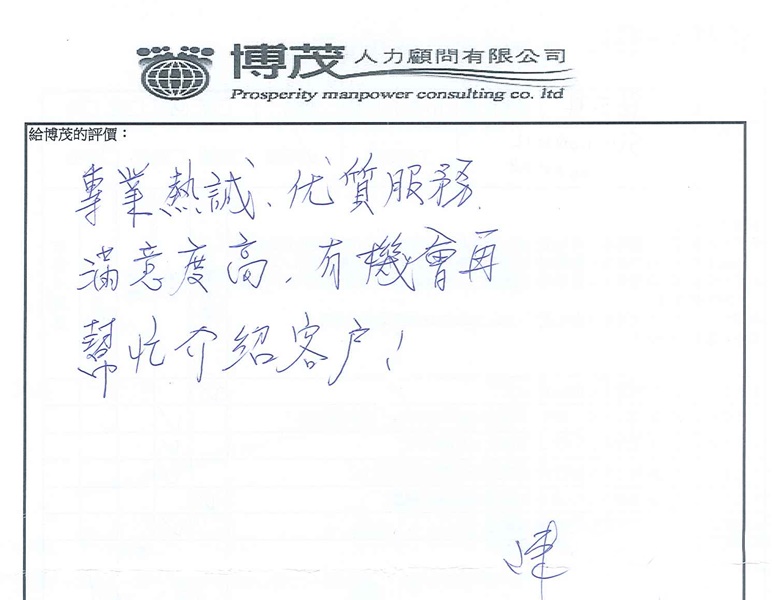 博茂人力顧問有限公司
Prosperity manpower consulting co. ltd
給博茂的評價：
專業熱誠、优質服務.
滿意度高，有機會再
幫忙介紹客户！